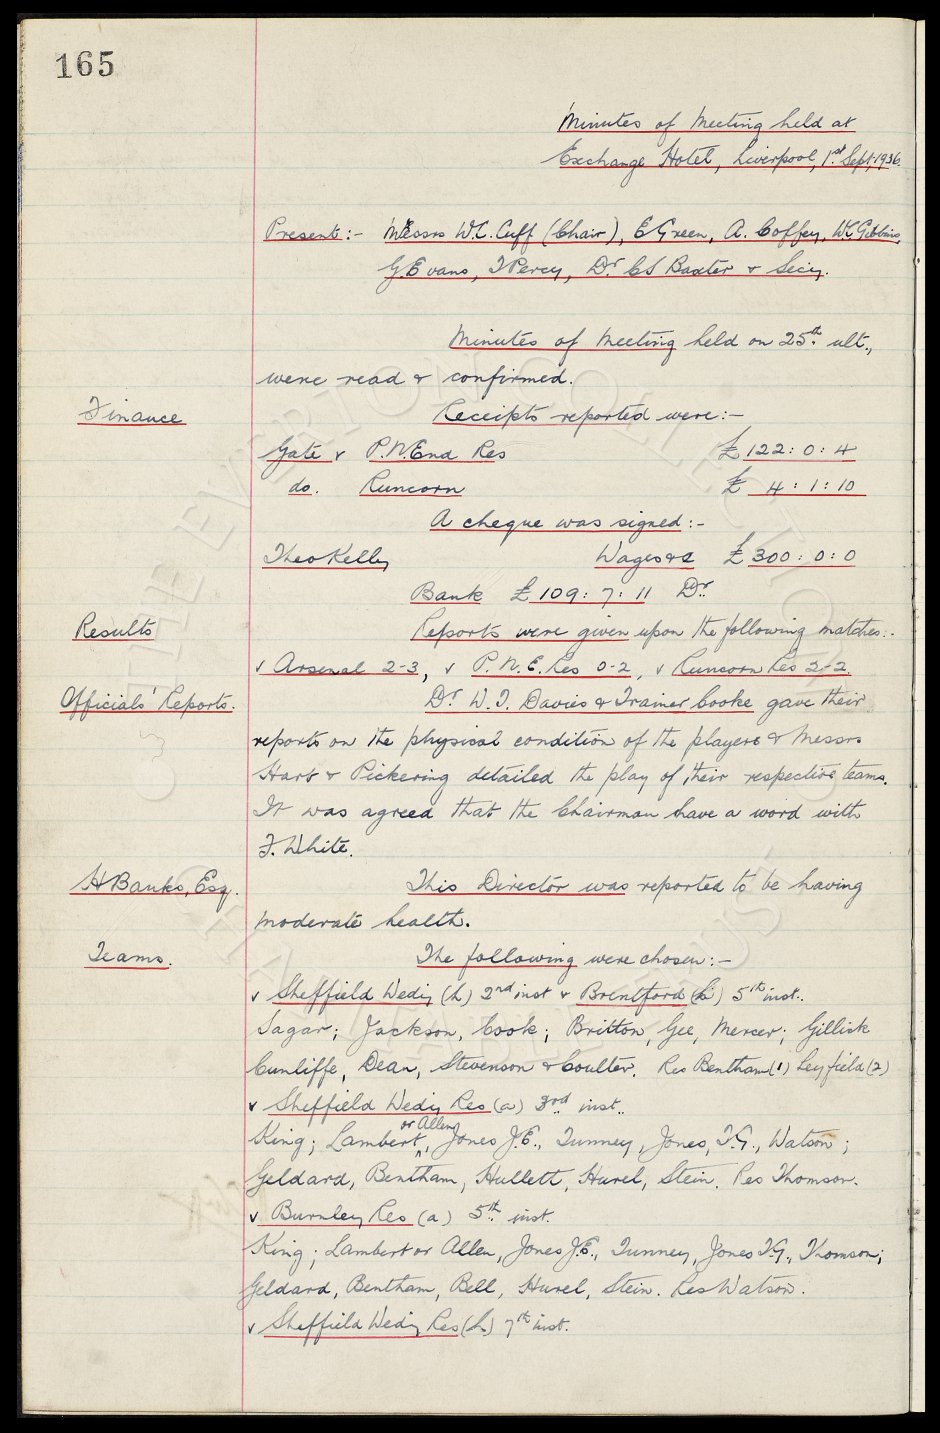 165
Minutes of Meeting held at
Exchange Hotel, Liverpool, 1st Sept, 1936.
Present:- Messrs W.C. Cuff (Chair), E Green, A. Coffey, W.C. Gibbins,
G. Evans, T Percy, Dr. C S Baxter & Secy.
Minutes of Meeting held on 25th. ult.,
were read & confirmed.
Finance
Receipts reported were:-
Gate v P.N.End Res £122:0:4
do. Runcorn £ 4:1:10
A cheque was signed:-
Theo Kelly Wages &c £300:0:0
Bank £109:7:11 Dr.
Results
Reports were given upon the following matches:-
v Arsenal 2-3, v P.N.E. Res 0-2, v Runcorn Res 2-2.
Officials' Reports.
Dr. W.J. Davies & Trainer Cooke gave their
reports on the physical condition of the players & Messrs
Hart & Pickering detailed the play of their respective teams.
It was agreed that the Chairman have a word with
T. White.
H Banks, Esq.
This Director was reported to be having
moderate health.
Teams.
The following were chosen:-
v Sheffield Wedy (h) 2nd inst & Brentford (h) 5th inst..
Sagar; Jackson, Cook; Britton, Gee, Mercer; Gillick
Cunliffe, Dean, Stevenson & Coulter. Res Bentham (1) Leyfield (2)
v Sheffield Wedy Res (a) 3rd inst..
King; Lambert or Allen, Jones J.E., Tunney, Jones, T.G., Watson;
Geldard, Bentham, Hullett, Hurel, Stein. Res Thomson.
v Burnley Res (a) 5th. inst.
King; Lambert or Allen, Jones J.E., Tunney, Jones T.G., Thomson;
Geldard, Bentham, Bell, Hurel, Stein. Res Watson.
v Sheffield Wedy Res (h) 7th inst.
THE EVERTON COLLECTION
CHARITABLE TRUST